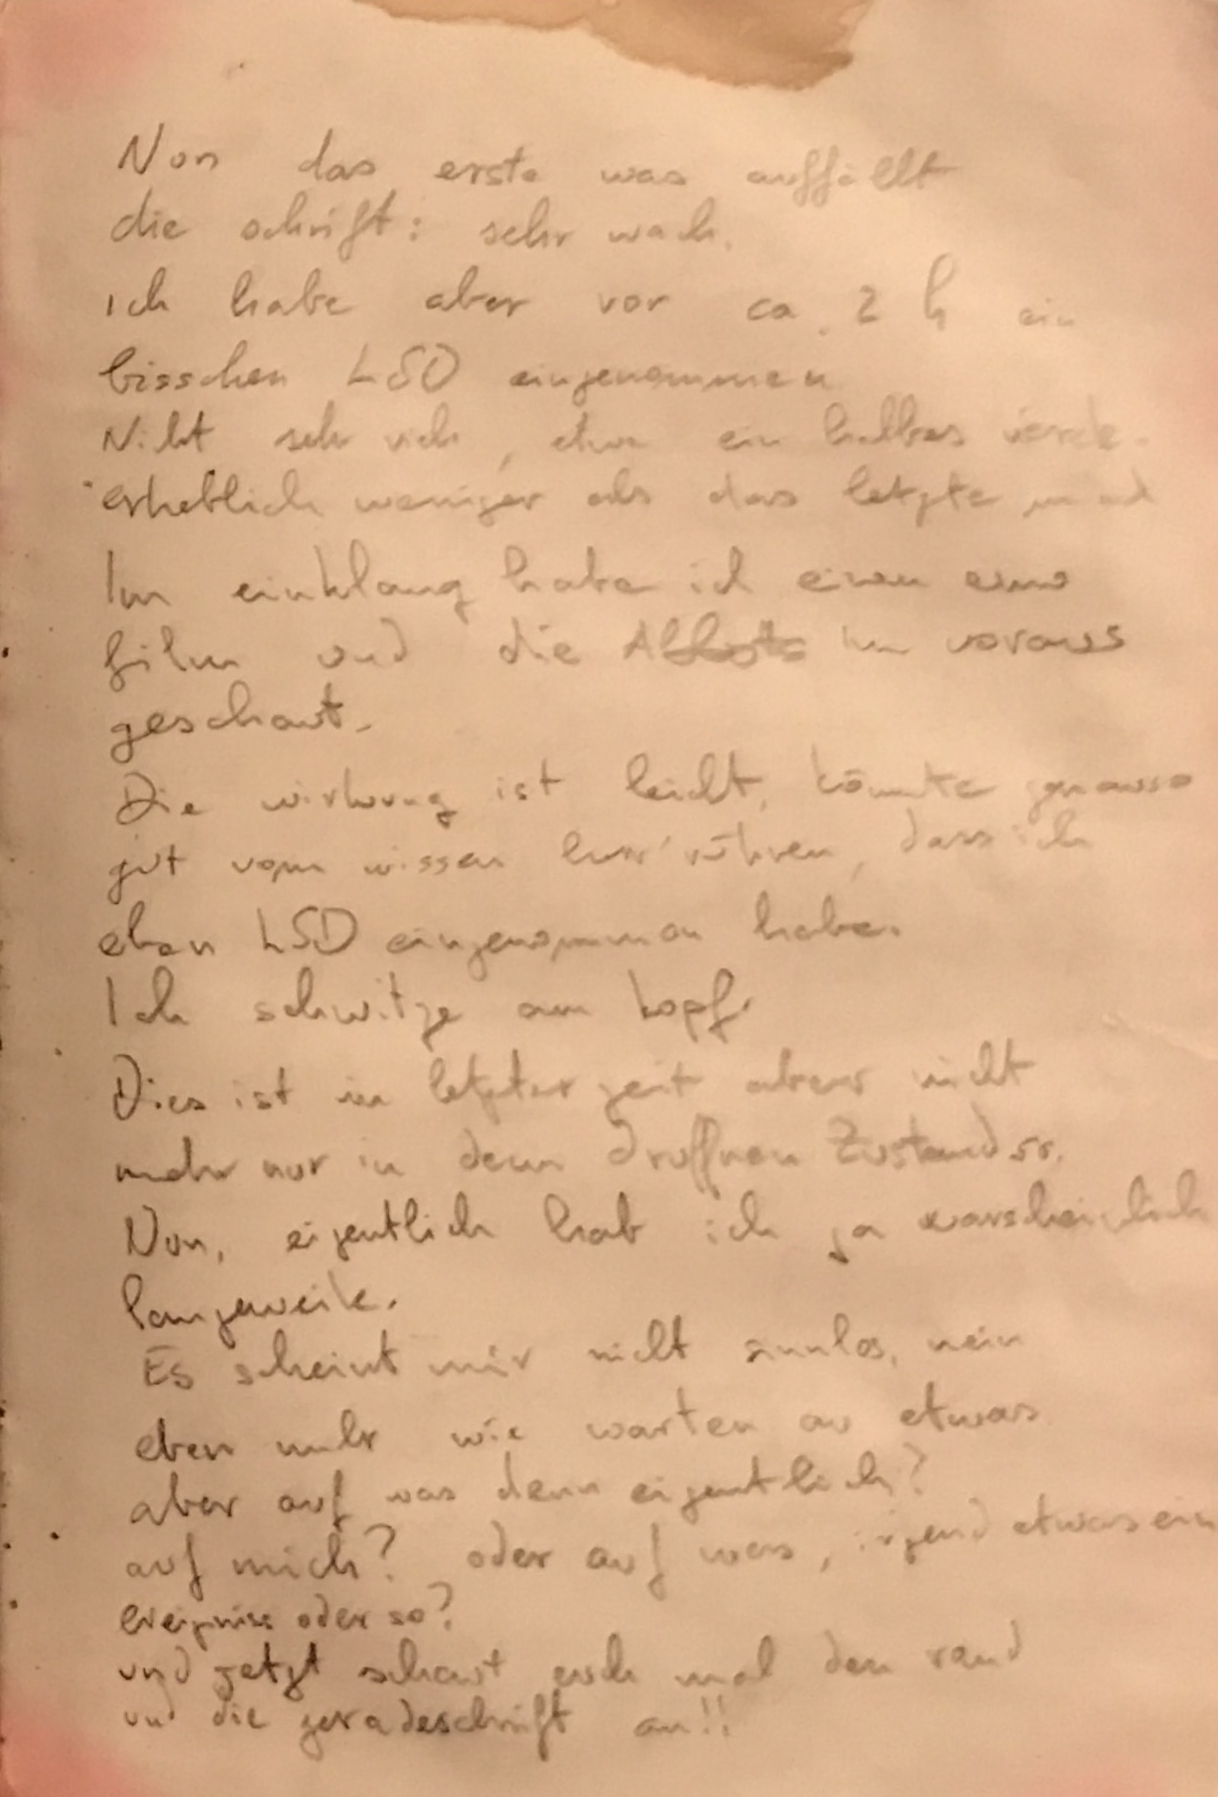 Nun das erste was auffällt
die schrift: sehr wach.
ich habe aber vor ca. 2 h ein
bisschen LSD eingenommen
Nicht sehr viel, etwa ein halbes
erheblich weniger als das letzte mal
Im einklang habe ich einen
film und die im voraus
geschaut.
Die wirkung ist leicht, könnte genauso
gut vom wissen herrühren, dass ich
eben LSD eingenommen habe.
Ich schwitze am kopf.
Dies ist in letzter zeit aber nicht
mehr nur in dem druffnen Zustand so.
Nun, eigentlich hab ich ja warscheinlich
langeweile.
Es scheint mir nicht sinnlos, nein
eben mehr wie warten au etwas
aber auf was denn eigentlich?
auf mich? oder auf was, irgend etwas ein
ereigniss oder so?
und jetzt schaut euch mal den rand
und die geradeschrift an!!